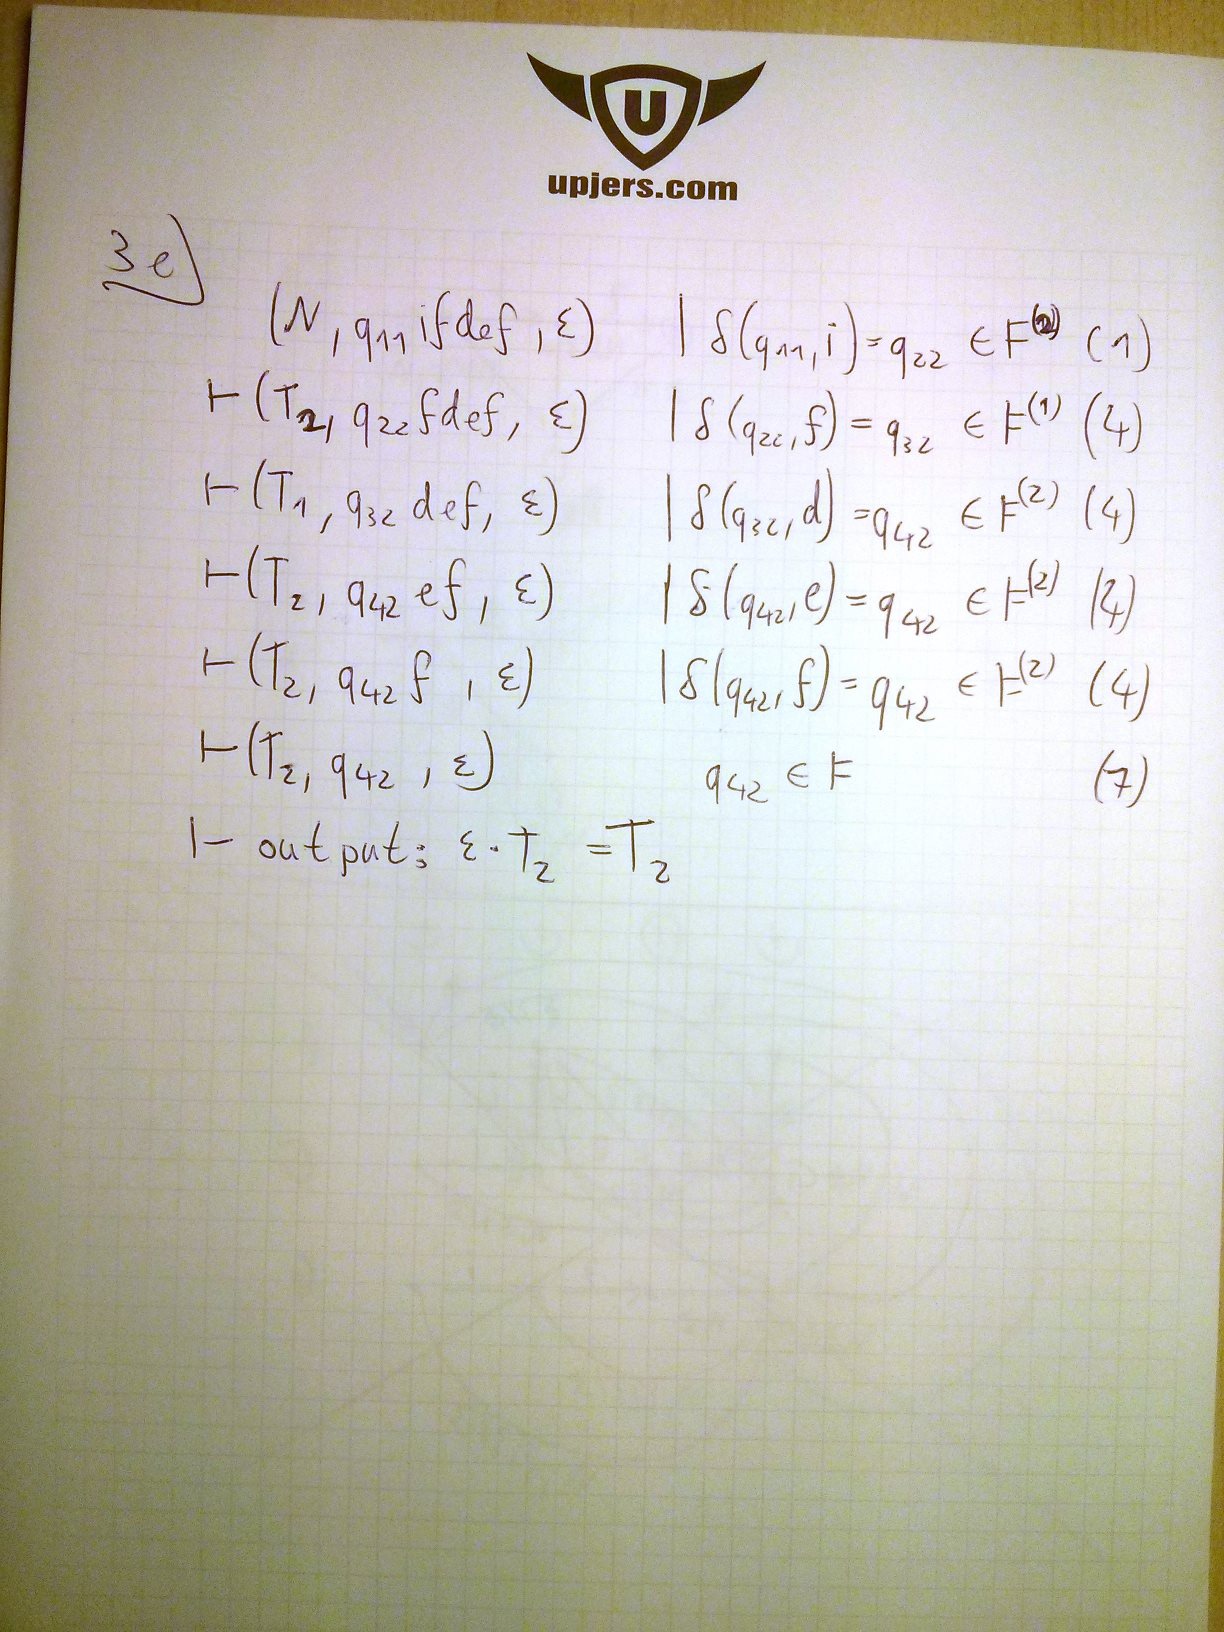 U
upjers.com
3e)
(N, q11 ifdef, ε) | δ(q11, i) = q22 ∈ F(2) (1)
⊢ (T2, q22 fdef, ε) | δ(q22, f) = q32 ∈ F(1) (4)
⊢ (T1, q32 def, ε) | δ(q32, d) = q42 ∈ F(2) (4)
⊢ (T2, q42 ef, ε) | δ(q42, e) = q42 ∈ F(2) (4)
⊢ (T2, q42 f, ε) | δ(q42, f) = q42 ∈ F(2) (4)
⊢ (T2, q42, ε) q42 ∈ F (7)
⊢ output: ε · T2 = T2